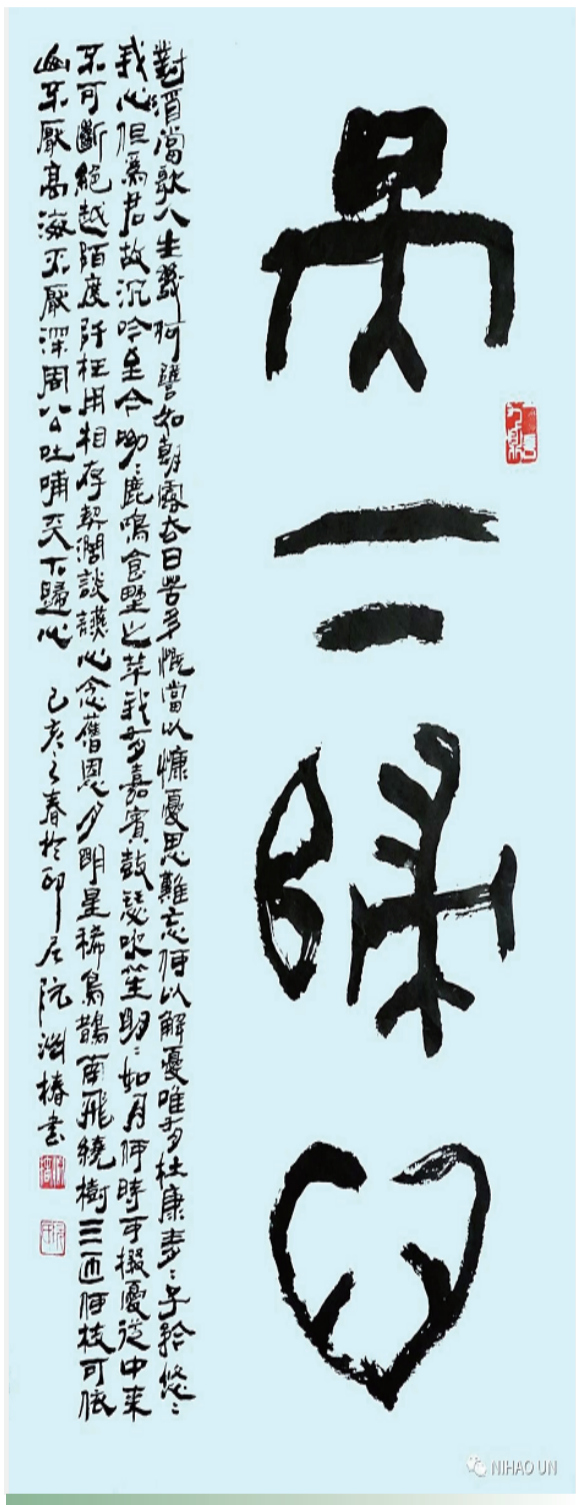 天下歸心
對酒當歌人生幾何譬如朝露去日苦多慨當以慷憂思難忘何以解憂唯有杜康青:子衿悠:
我心但爲君故沉吟至今呦:鹿鳴食野之苹我有嘉賓鼓瑟吹笙明:如月何時可掇憂從中來
不可斷絕越陌度阡枉用相存契濶談讌心念舊恩月明星稀烏鵲南飛繞樹三匝何枝可依
山不厭高海不厭深周公吐哺天下歸心 己亥之春於 阮淵椿書
NIHAO UN